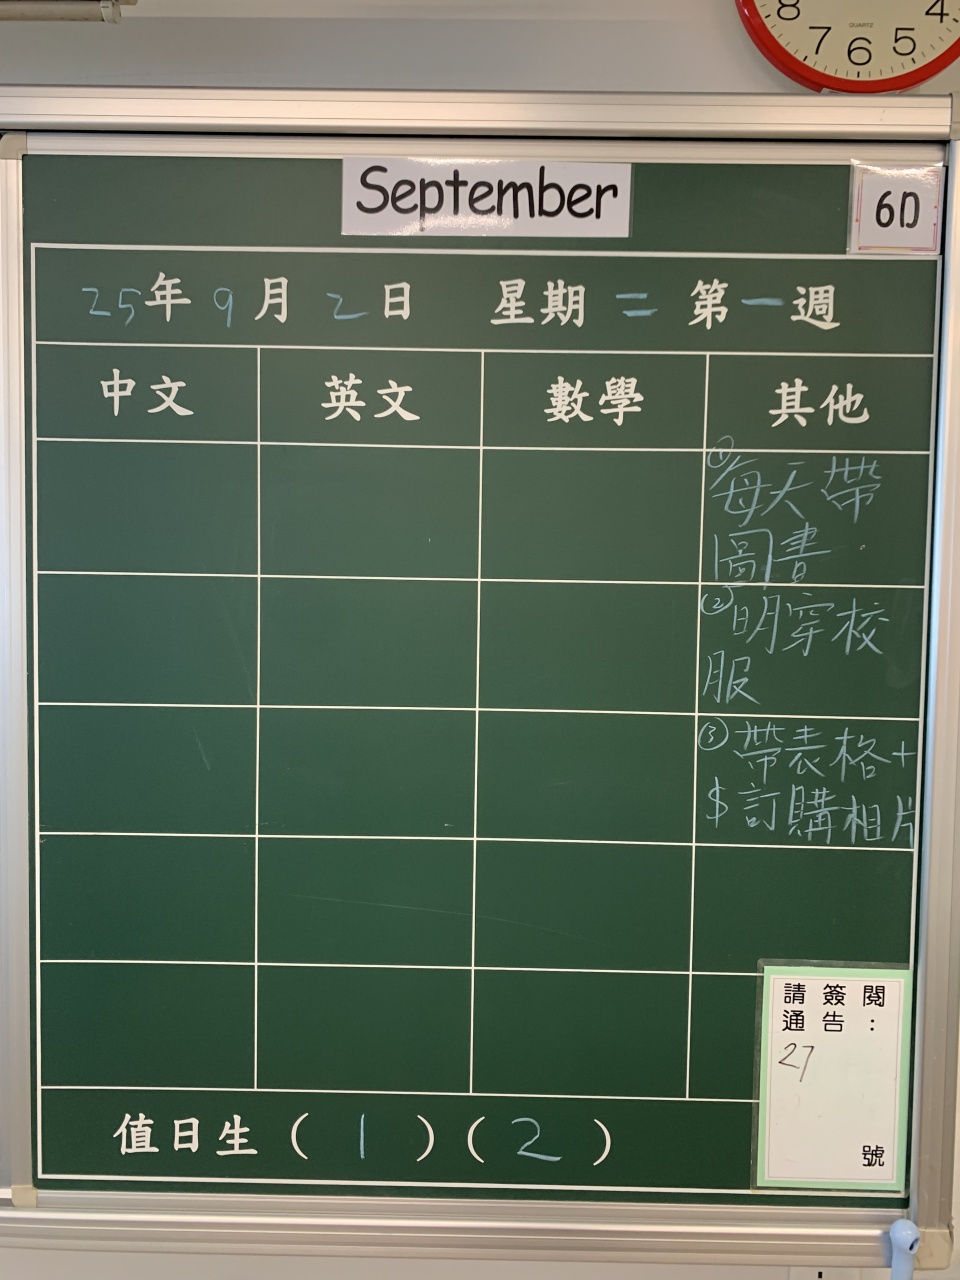 8 4
7 6 5
QUARTZ
September
6D
25年9月2日 星期二 第一週
中文 英文 數學 其他
①每天帶
圖書.
②明穿校
服
③帶表格+
$訂購相片
請簽閱
通告:
27
號
值日生(1)(2)